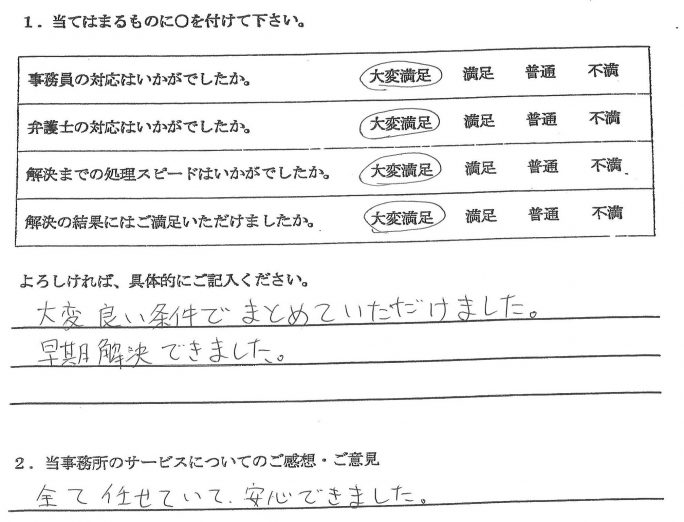 1．当てはまるものに○を付けて下さい。
事務員の対応はいかがでしたか。 大変満足 満足 普通 不満
弁護士の対応はいかがでしたか。 大変満足 満足 普通 不満
解決までの処理スピードはいかがでしたか。 大変満足 満足 普通 不満
解決の結果にはご満足いただけましたか。 大変満足 満足 普通 不満
よろしければ、具体的にご記入ください。
大変良い条件でまとめていただけました。
早期解決できました。
2．当事務所のサービスについてのご感想・ご意見
全て任せていて、安心できました。